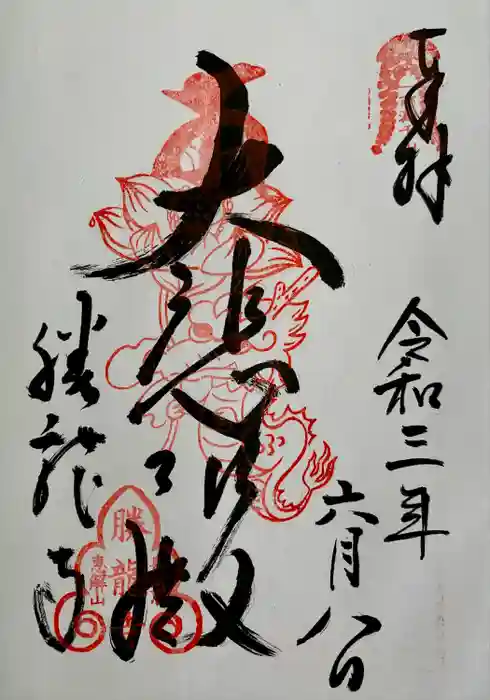 奉拝
令和三年
六月八日
大悲殿
勝龍寺
勝龍
惠解山